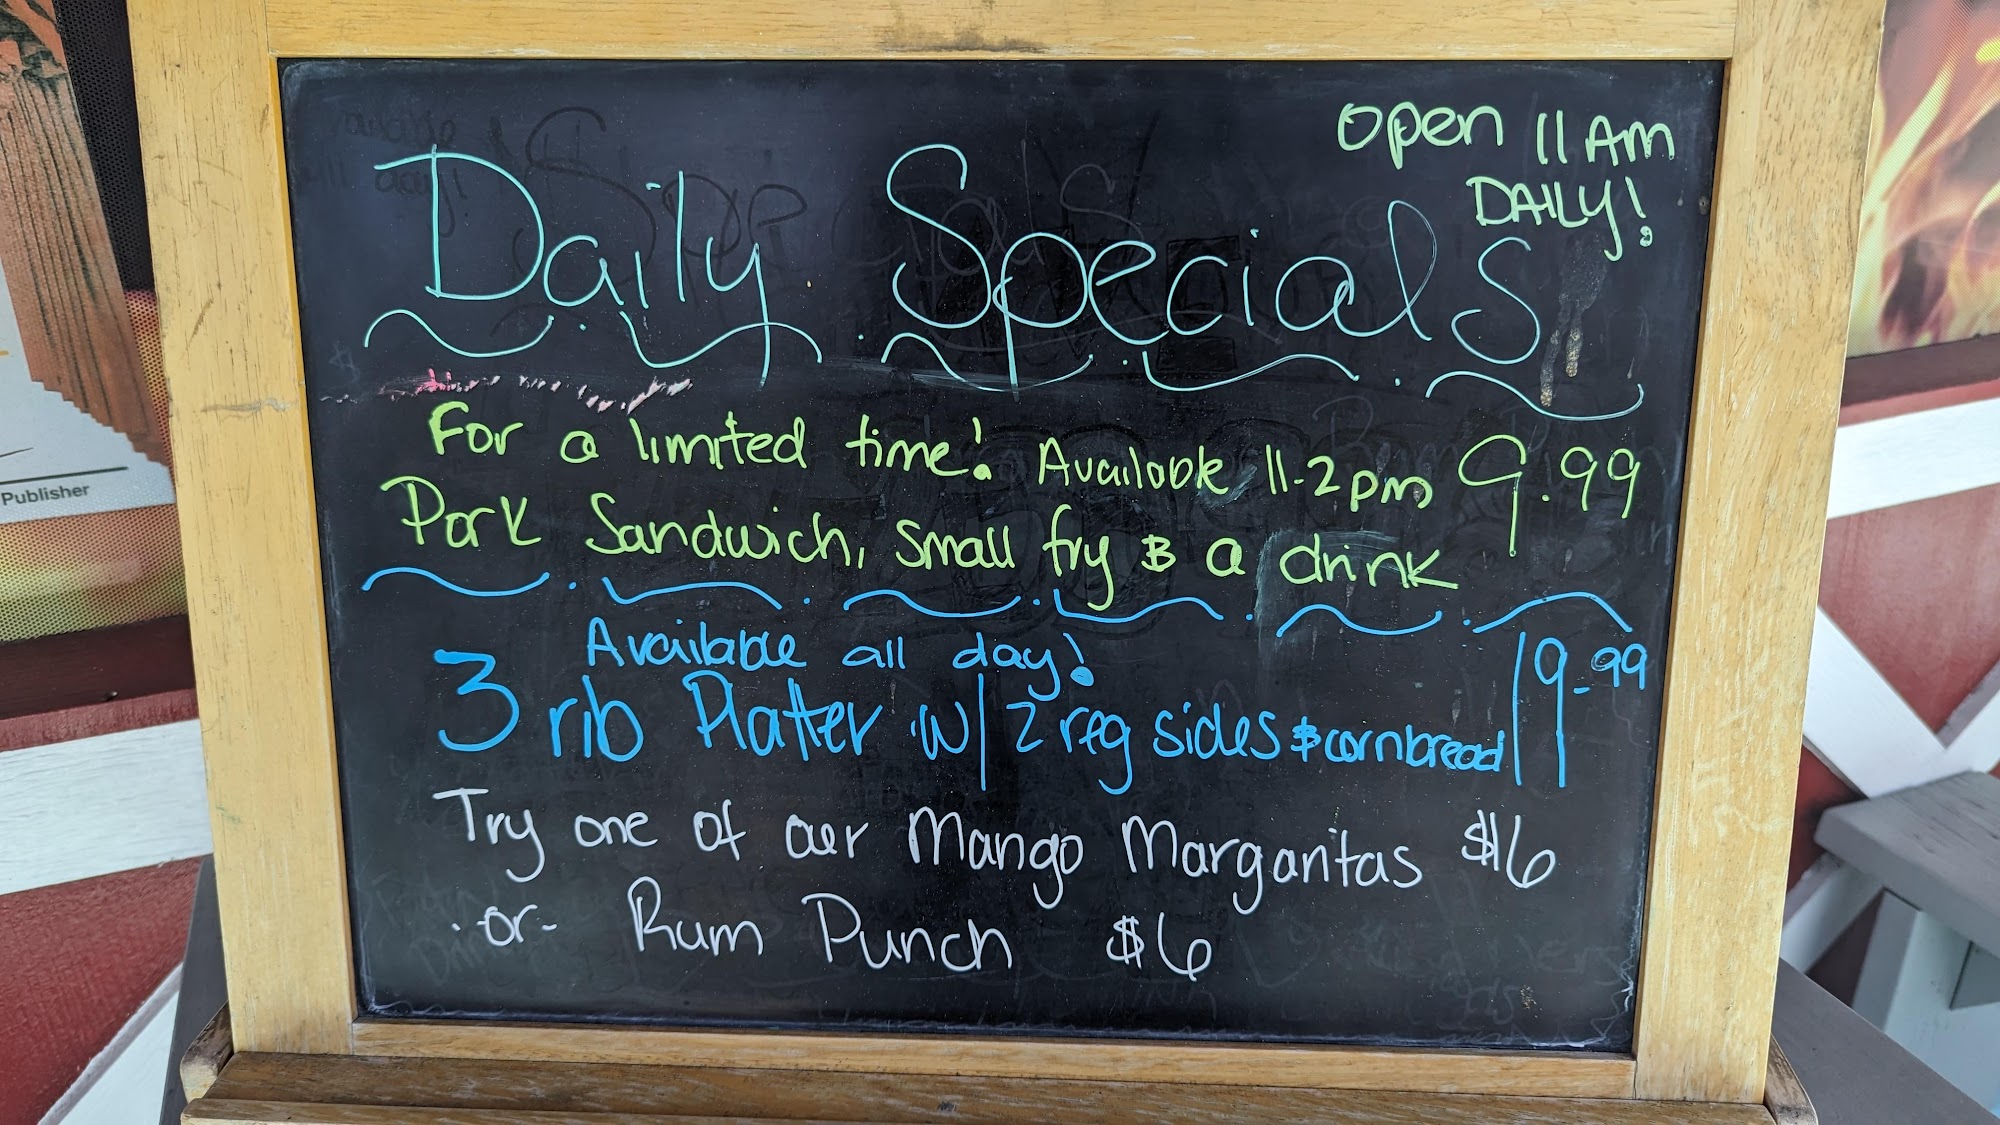 Open 11 AM
DAILY!
Daily Specials
For a limited time! Available 11-2pm 9.99
Pork Sandwich, Small fry & a drink
Available all day!
3 rib Platter w/ 2 reg sides & cornbread 19.99
Try one of our Mango Margaritas $16
-or- Rum Punch $6
Publisher